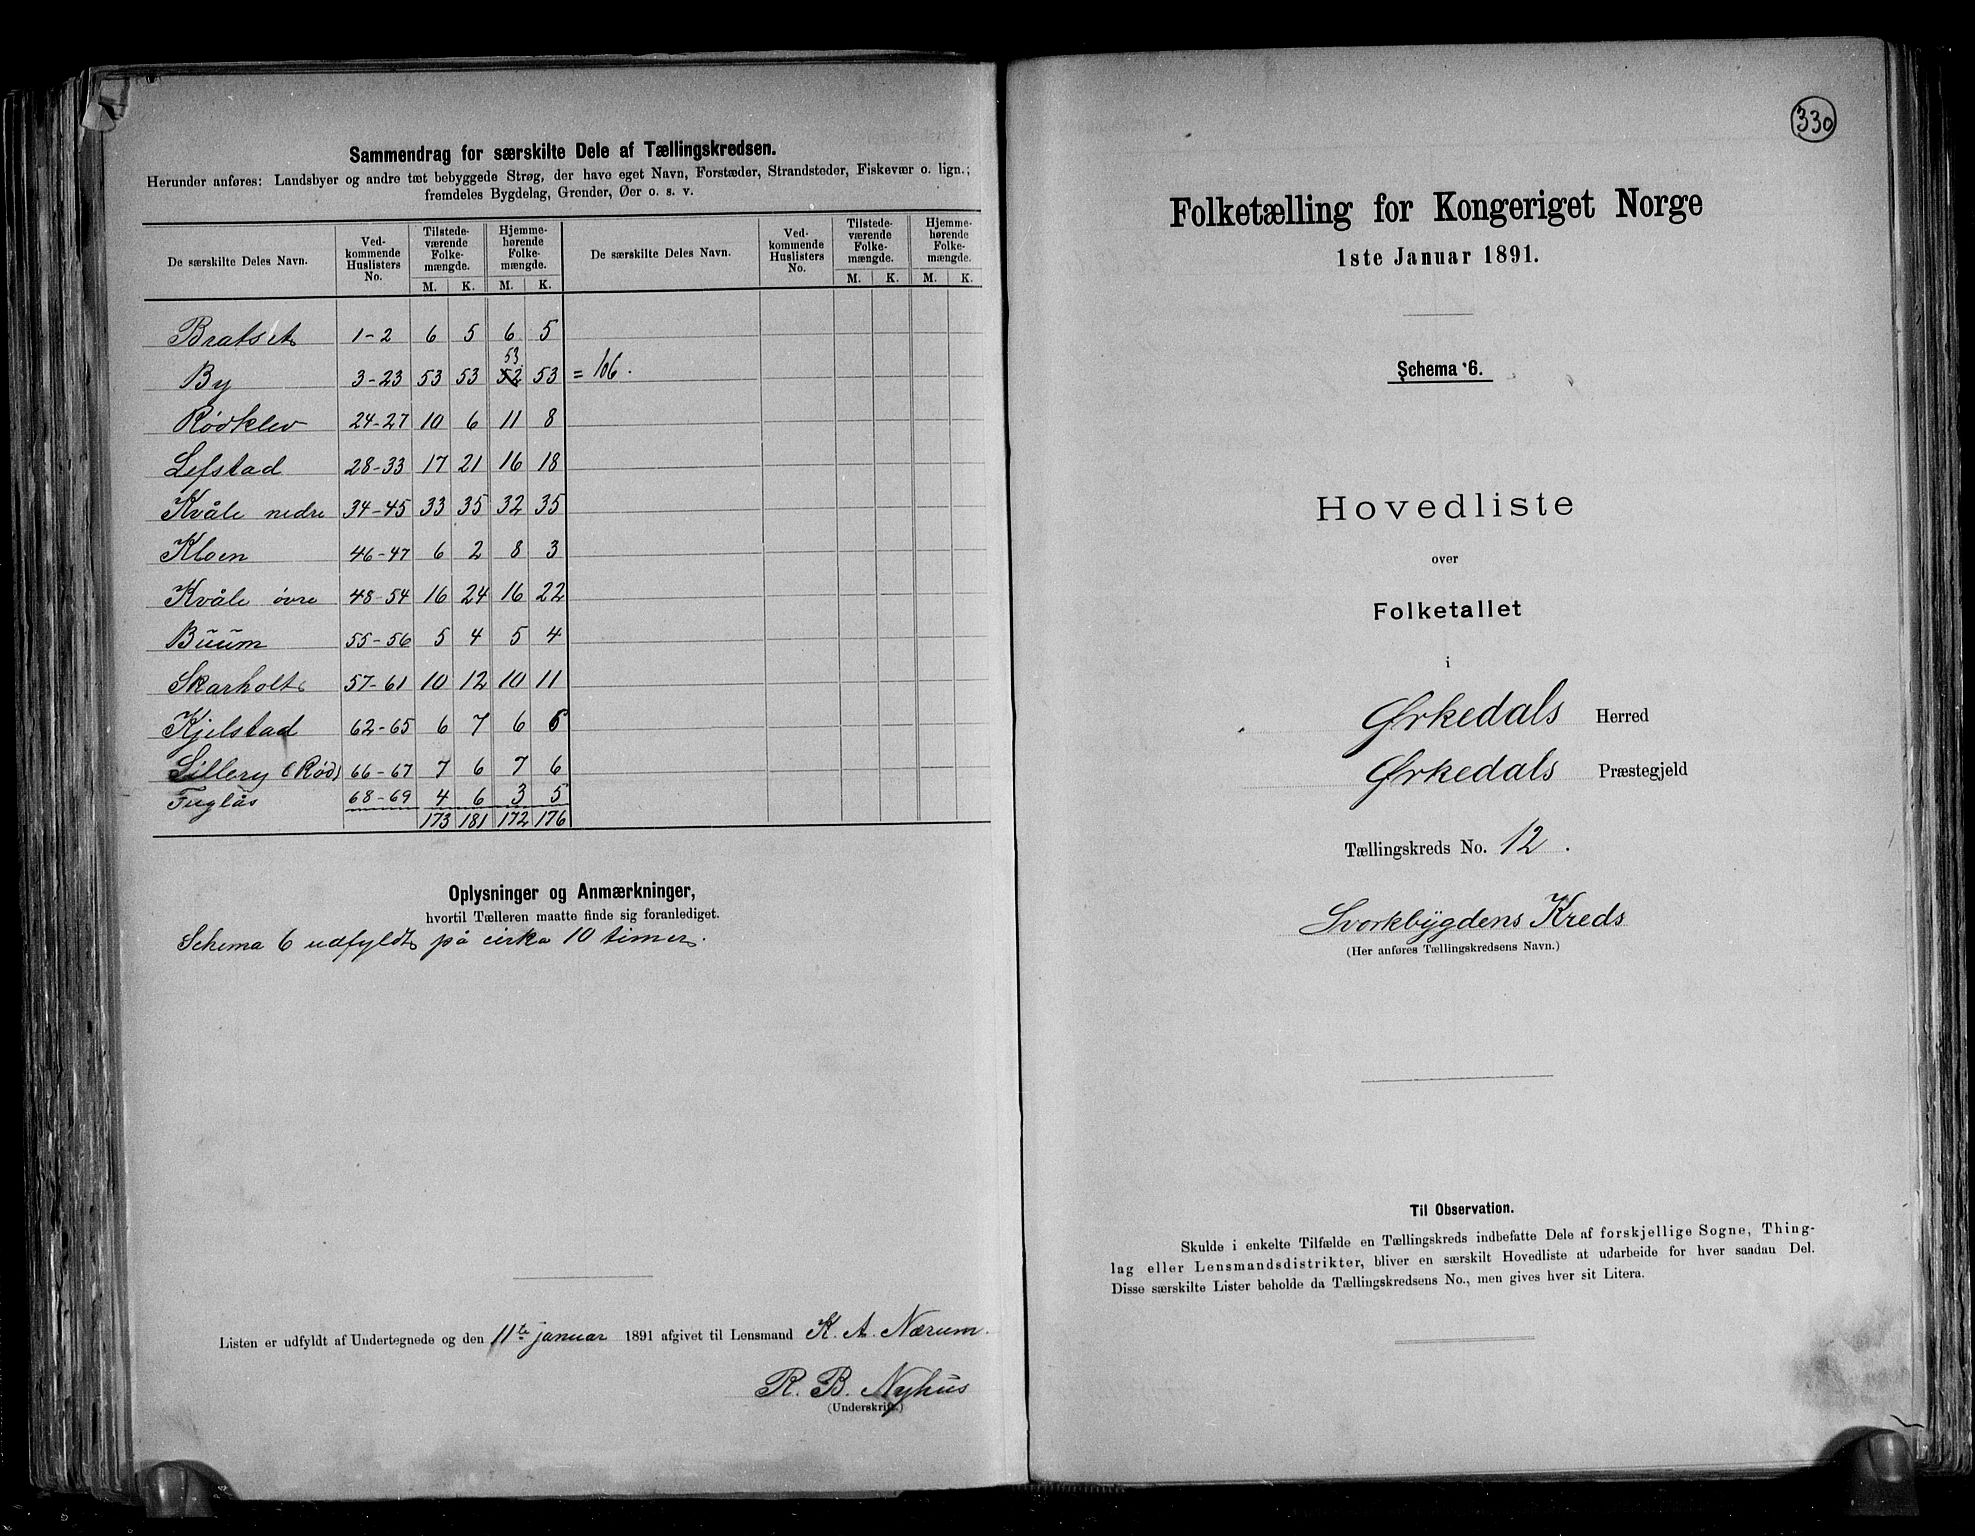 Sammendrag for særskilte Dele af Tællingskredsen.
Herunder anføres: Landsbyer og andre tæt bebyggede Strøg, der have eget Navn, Forstæder, Strandsteder, Fiskevær o. lign.;
fremdeles Bygdelag, Grender, Øer o. s. v.
De særskilte Deles Navn. Vedkommende Huslisters No. Tilstedeværende Folkemængde. M. K. Hjemmehørende Folkemængde. M. K. De særskilte Deles Navn. Vedkommende Huslisters No. Tilstedeværende Folkemængde. M. K. Hjemmehørende Folkemængde. M. K.
Bratset 1-2 6 5 6 5
53
By 3-23 53 53 52 53 = 106.
Rødklev 24-27 10 6 11 8
Lefstad 28-33 17 21 16 18
Kvåle nedre 34-45 33 35 32 35
Kloen 46-47 6 2 8 3
Kvåle øvre 48-54 16 24 16 22
Buum 55-56 5 4 5 4
Skarholt 57-61 10 12 10 11
Kjelstad 62-65 6 7 6 6
Lillery (Rød) 66-67 7 6 7 6
Fuglås 68-69 4 6 3 5
173 181 172 176
Oplysninger og Anmærkninger,
hvortil Tælleren maatte finde sig foranlediget.
Schema 6 udfyldt på cirka 10 timer.
Listen er udfyldt af Undertegnede og den 11te januar 1891 afgivet til Lensmand K. A. Nærum.
R. B. Nyhus
(Underskrift.)
330
Folketælling for Kongeriget Norge
1ste Januar 1891.
Schema 6.
Hovedliste
over
Folketallet
i
Ørkedals Herred
Ørkedals Præstegjeld
Tællingskreds No. 12.
Svorkbygdens Kreds
(Her anføres Tællingskredsens Navn.)
Til Observation.
Skulde i enkelte Tilfælde en Tællingskreds indbefatte Dele af forskjellige Sogne, Thing-
lag eller Lensmandsdistrikter, bliver en særskilt Hovedliste at udarbeide for hver saadan Del.
Disse særskilte Lister beholde da Tællingskredsens No., men gives hver sit Litera.